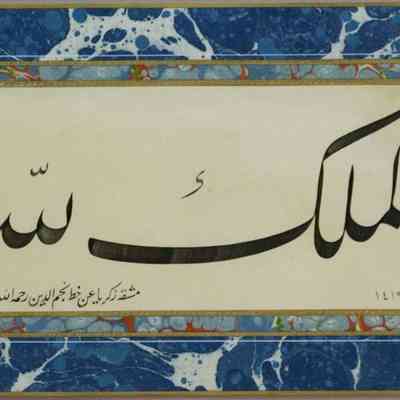 الملك لله
مشقه زكريا عن خط نجم الدين رحمه الله